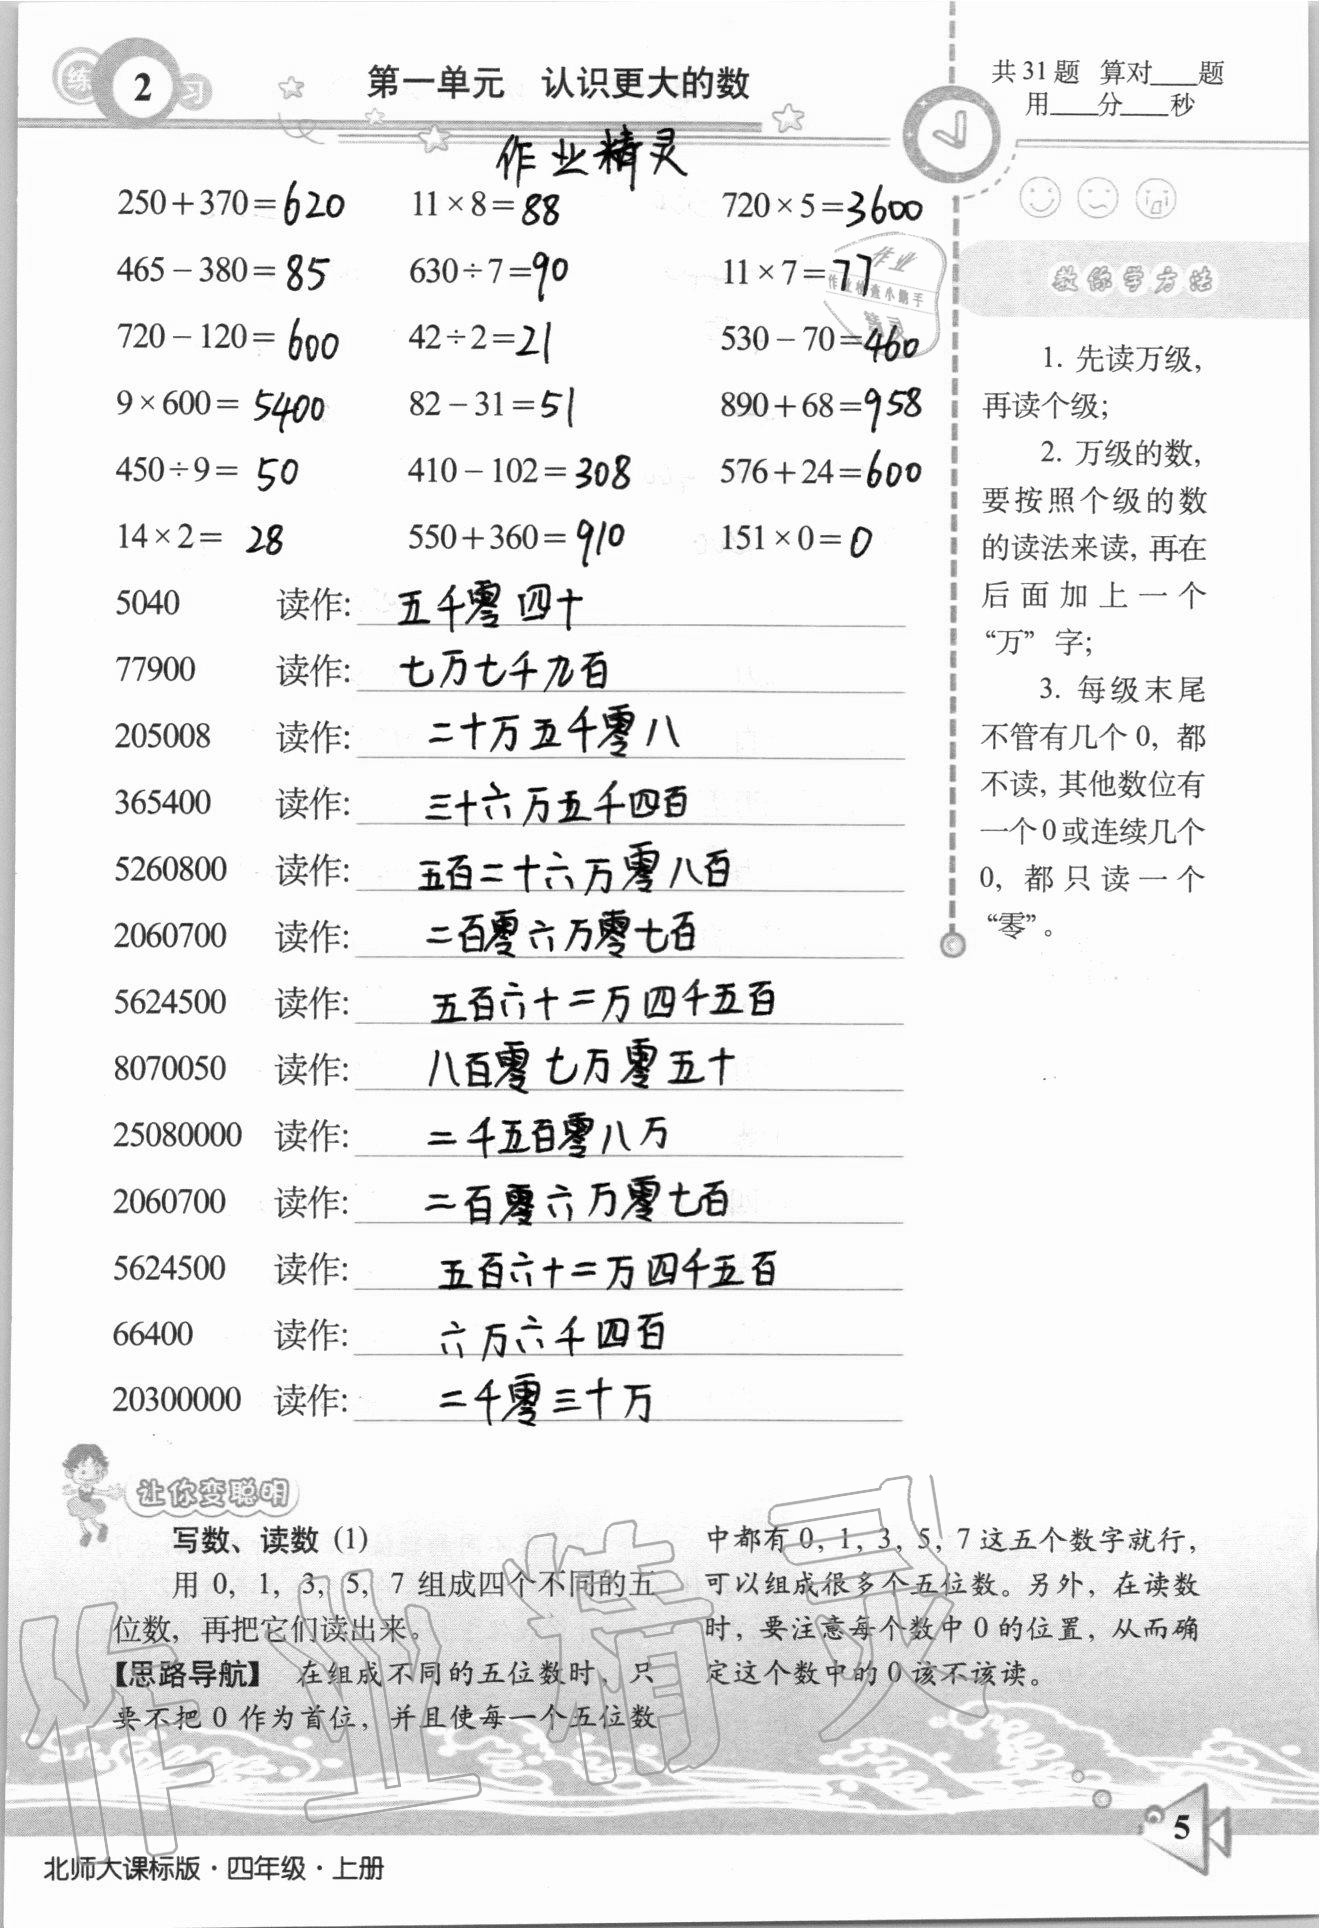 练 2 习
第一单元 认识更大的数
共31题 算对____题
用____分____秒
作业精灵
250+370=620 11×8=88 720×5=3600
465-380=85 630÷7=90 11×7=77
720-120=600 42÷2=21 530-70=460
9×600=5400 82-31=51 890+68=958
450÷9=50 410-102=308 576+24=600
14×2=28 550+360=910 151×0=0
5040 读作:五千零四十
77900 读作:七万七千九百
205008 读作:二十万五千零八
365400 读作:三十六万五千四百
5260800 读作:五百二十六万零八百
2060700 读作:二百零六万零七百
5624500 读作:五百六十二万四千五百
8070050 读作:八百零七万零五十
25080000 读作:二千五百零八万
2060700 读作:二百零六万零七百
5624500 读作:五百六十二万四千五百
66400 读作:六万六千四百
20300000 读作:二千零三十万
作业
作业检查小助手
精灵
教你学方法
1. 先读万级,
再读个级;
2. 万级的数,
要按照个级的数
的读法来读, 再在
后面加上一个
“万”字;
3. 每级末尾
不管有几个0, 都
不读, 其他数位有
一个0或连续几个
0, 都只读一个
“零”。
让你变聪明
写数、读数 (1)
用 0, 1, 3, 5, 7 组成四个不同的五
位数, 再把它们读出来。
【思路导航】 在组成不同的五位数时, 只
要不把 0 作为首位, 并且使每一个五位数
中都有 0, 1, 3, 5, 7 这五个数字就行,
可以组成很多个五位数。另外, 在读数
时, 要注意每个数中 0 的位置, 从而确
定这个数中的 0 该不该读。
作业精灵
5
北师大课标版·四年级·上册